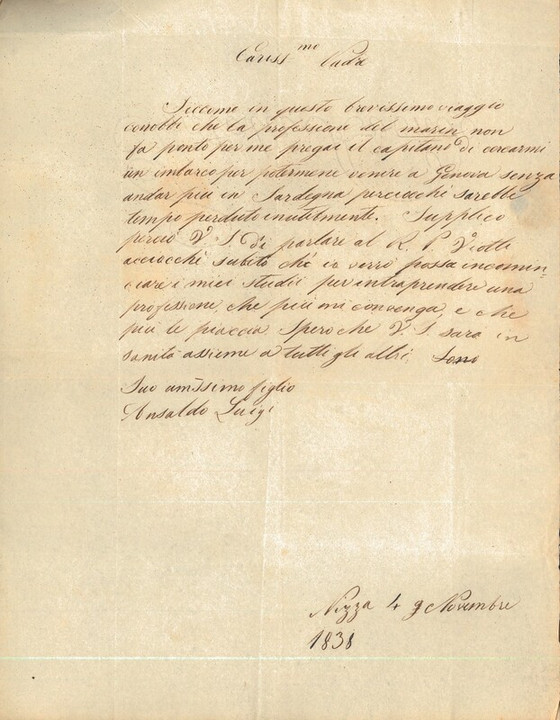 Cariss.mo Padre
Siccome in questo brevissimo viaggio
conobbi che la professione del marin non
fa ponto per me pregai il capitano di cercarmi
un imbarco per potermene venire a Genova senza
andar più in Sardegna perciocchè sarebbe
tempo perduto inutilmente. Supplico
perciò V. S. di parlare al R. P. Viotti
acciocchè subito ch'io verrò possa incomin
ciare i miei studii per intraprendere una
professione, che più mi convenga, e che
più le piaccia Spero che V. S. sarà in
sanità assieme a tutti gli altri. Sono
Suo amissimo figlio
Ansaldo Luigi
Nizza 4 9Novembre
1838